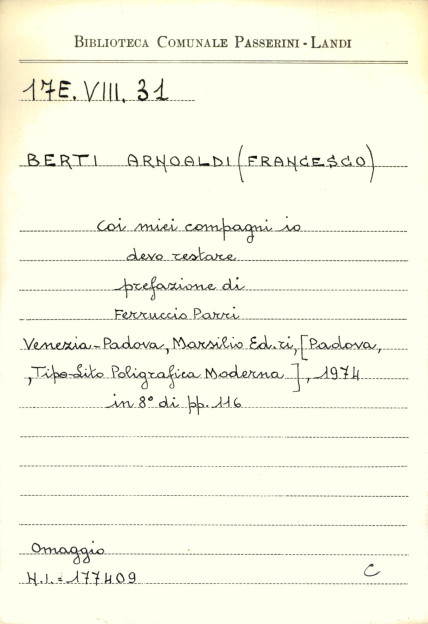 BIBLIOTECA COMUNALE PASSERINI - LANDI
17E. VIII. 31
BERTI ARNOALDI (FRANCESCO)
Coi miei compagni io
devo restare
prefazione di
Ferruccio Parri
Venezia - Padova, Marsilio Ed.ri, [Padova,
, Tipo-Lito Poligrafica Moderna], 1974
in 8° di pp. 116
Omaggio
N.I. = 177409
C